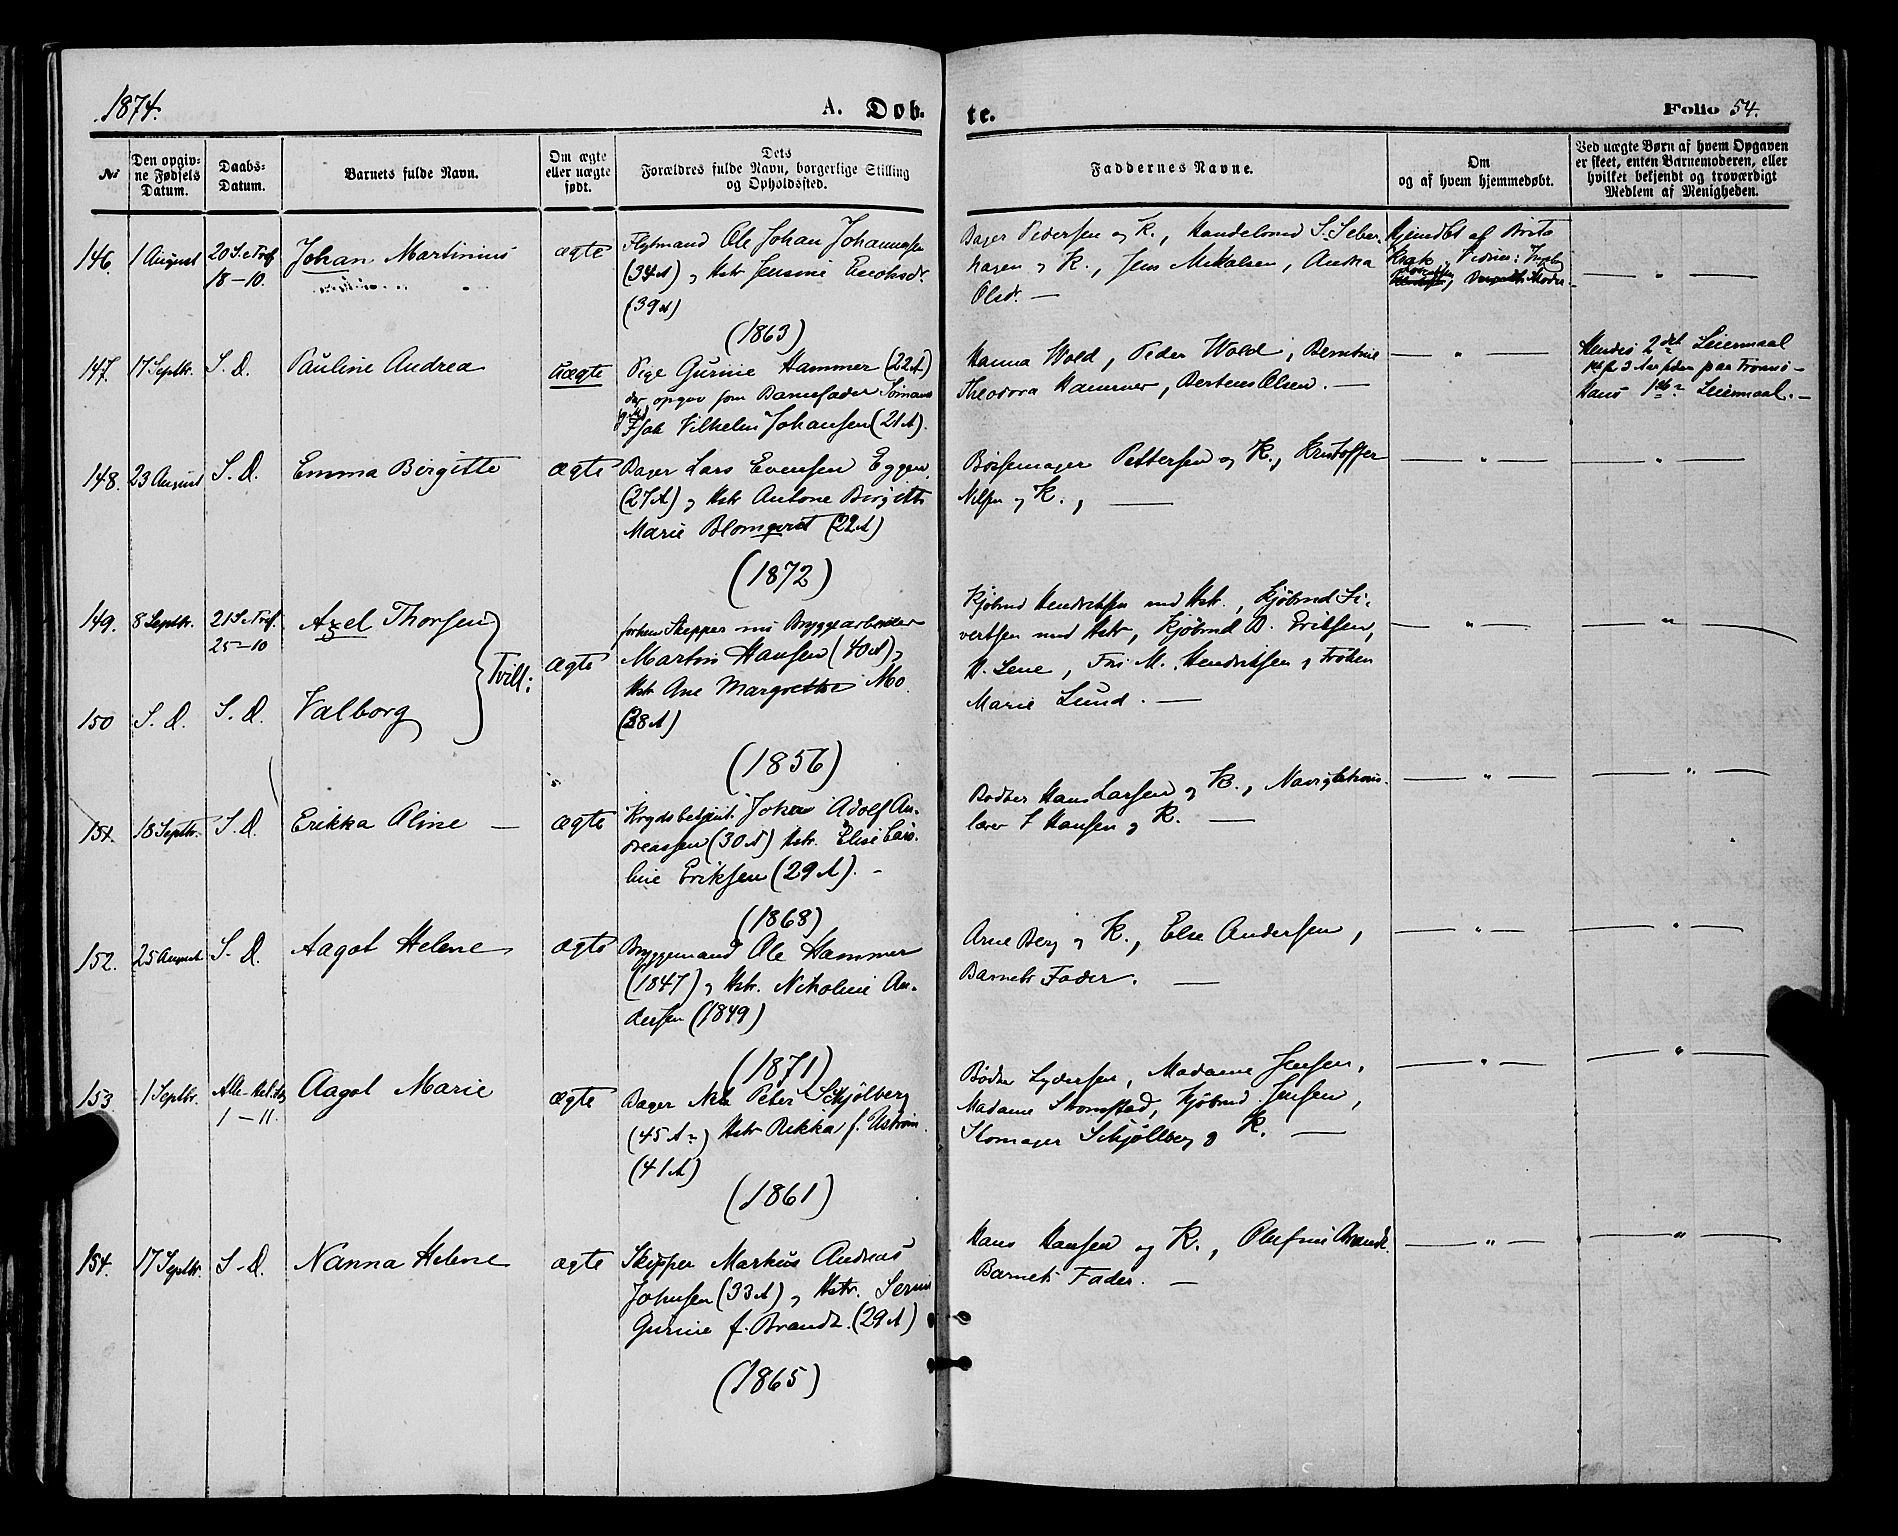 1874.
A. Døb-
te.
Folio 54.
No
Den opgiv-
ne Fødsels
Datum.
Daabs-
Datum.
Barnets fulde Navn.
Om ægte
eller uægte
født.
Dets
Forældres fulde Navn, borgerlige Stilling
og Opholdssted.
Faddernes Navne.
Om
og af hvem hjemmedøbt.
Ved uægte Børn af hvem Opgaven
er skeet, enten Barnemoderen, eller
hvilket bekjendt og troværdigt
Medlem af Menigheden.
146. 1 August 20 S. e Tref. 18-10. Johan Martinius ægte
Ole Johan Johannesen
(34 A) og Hstr Jensine Enoksdr.
(39 A)
(1863)
Bager Pedersen og K., Handelsmd S.
hagen og K., Jens Mikalsen, Andrea
Olsd. —
Hjemdbt af
— " —
147. 17 Septbr. S. D. Pauline Andrea uægte
Pige Gurine Hammer (22 A)
der opgav som Barnefader Sømand
Vilhelm Johansen (21 A).
Hanna Wold, Peder Wold, Berntine
Theodora Hammer, Bertens Olsen. —
— " —
Hendes 2det Leiermaal
Hans 1ste Leiermaal. —
148. 23 August S. D. Emma Birgitte ægte
Bager Lars Evensen Eggen
(27 A) og Hstr Antone Birgitte
Marie Blomqvist (22 A)
(1872)
Bøssemager Pettersen og K., Kristoffer
Nilsen og K., —
— " —
— " —
149. 8 Septbr. 21 S. e Tref. 25-10 Axel Thorsen
Tvill:
ægte
forhen Skipper nu Bryggearbeider
Martin Hansen (40 A) og
Hstr Ane Margrethe Mo.
(38 A)
(1856)
150 S. D. S. D. Valborg
Kjøbmd Hendriksen med Hstr., Kjøbmd Si-
vertsen med Hstr, Kjøbmd D. Eriksen,
Lene, Frk M. Hendriksen og Frøken
Marie Lund. —
— " —
— " —
151. 18 Septbr. S. D. Erikka Aline — ægte
Johan Adolf An-
dreassen (30 A) Hstr. Elise Caro-
line Eriksen (29 A). -
(1868)
Bødker Hans Larsen og K., Navigations-
lærer Hansen og K. —
— " —
— " —
152. 25 August S. D. Aagot Helene ægte
Bryggemand Ole Hammer
(1847) og Hstr. Nikoline An-
dersen (1849)
(1871)
Arne Berg og K., Else Andersen,
Barnets Fader. —
— " —
— " —
153. 1 Septbr. Alle-Hel. Dag 1-11. Aagot Marie ægte
Bager Peter Schjølberg
(45 A) Hstr Rikka f. Ustrøm.
(41 A)
(1861)
Bødker Lydersen, Madame Jensen,
Madame Stromstad, Kjøbmd Jensen,
Skomager Schjøllberg og K. —
— " —
— " —
154. 17 Septbr. S. D. Nanna Helene ægte
Skipper Markus Andreas
Johnsen (33 A) og Hstr. Serine
Gurine f. Brandt. (29 A)
(1865)
Hans Hansen og K., Olufine
Barnets Fader. —
— " —
— " —